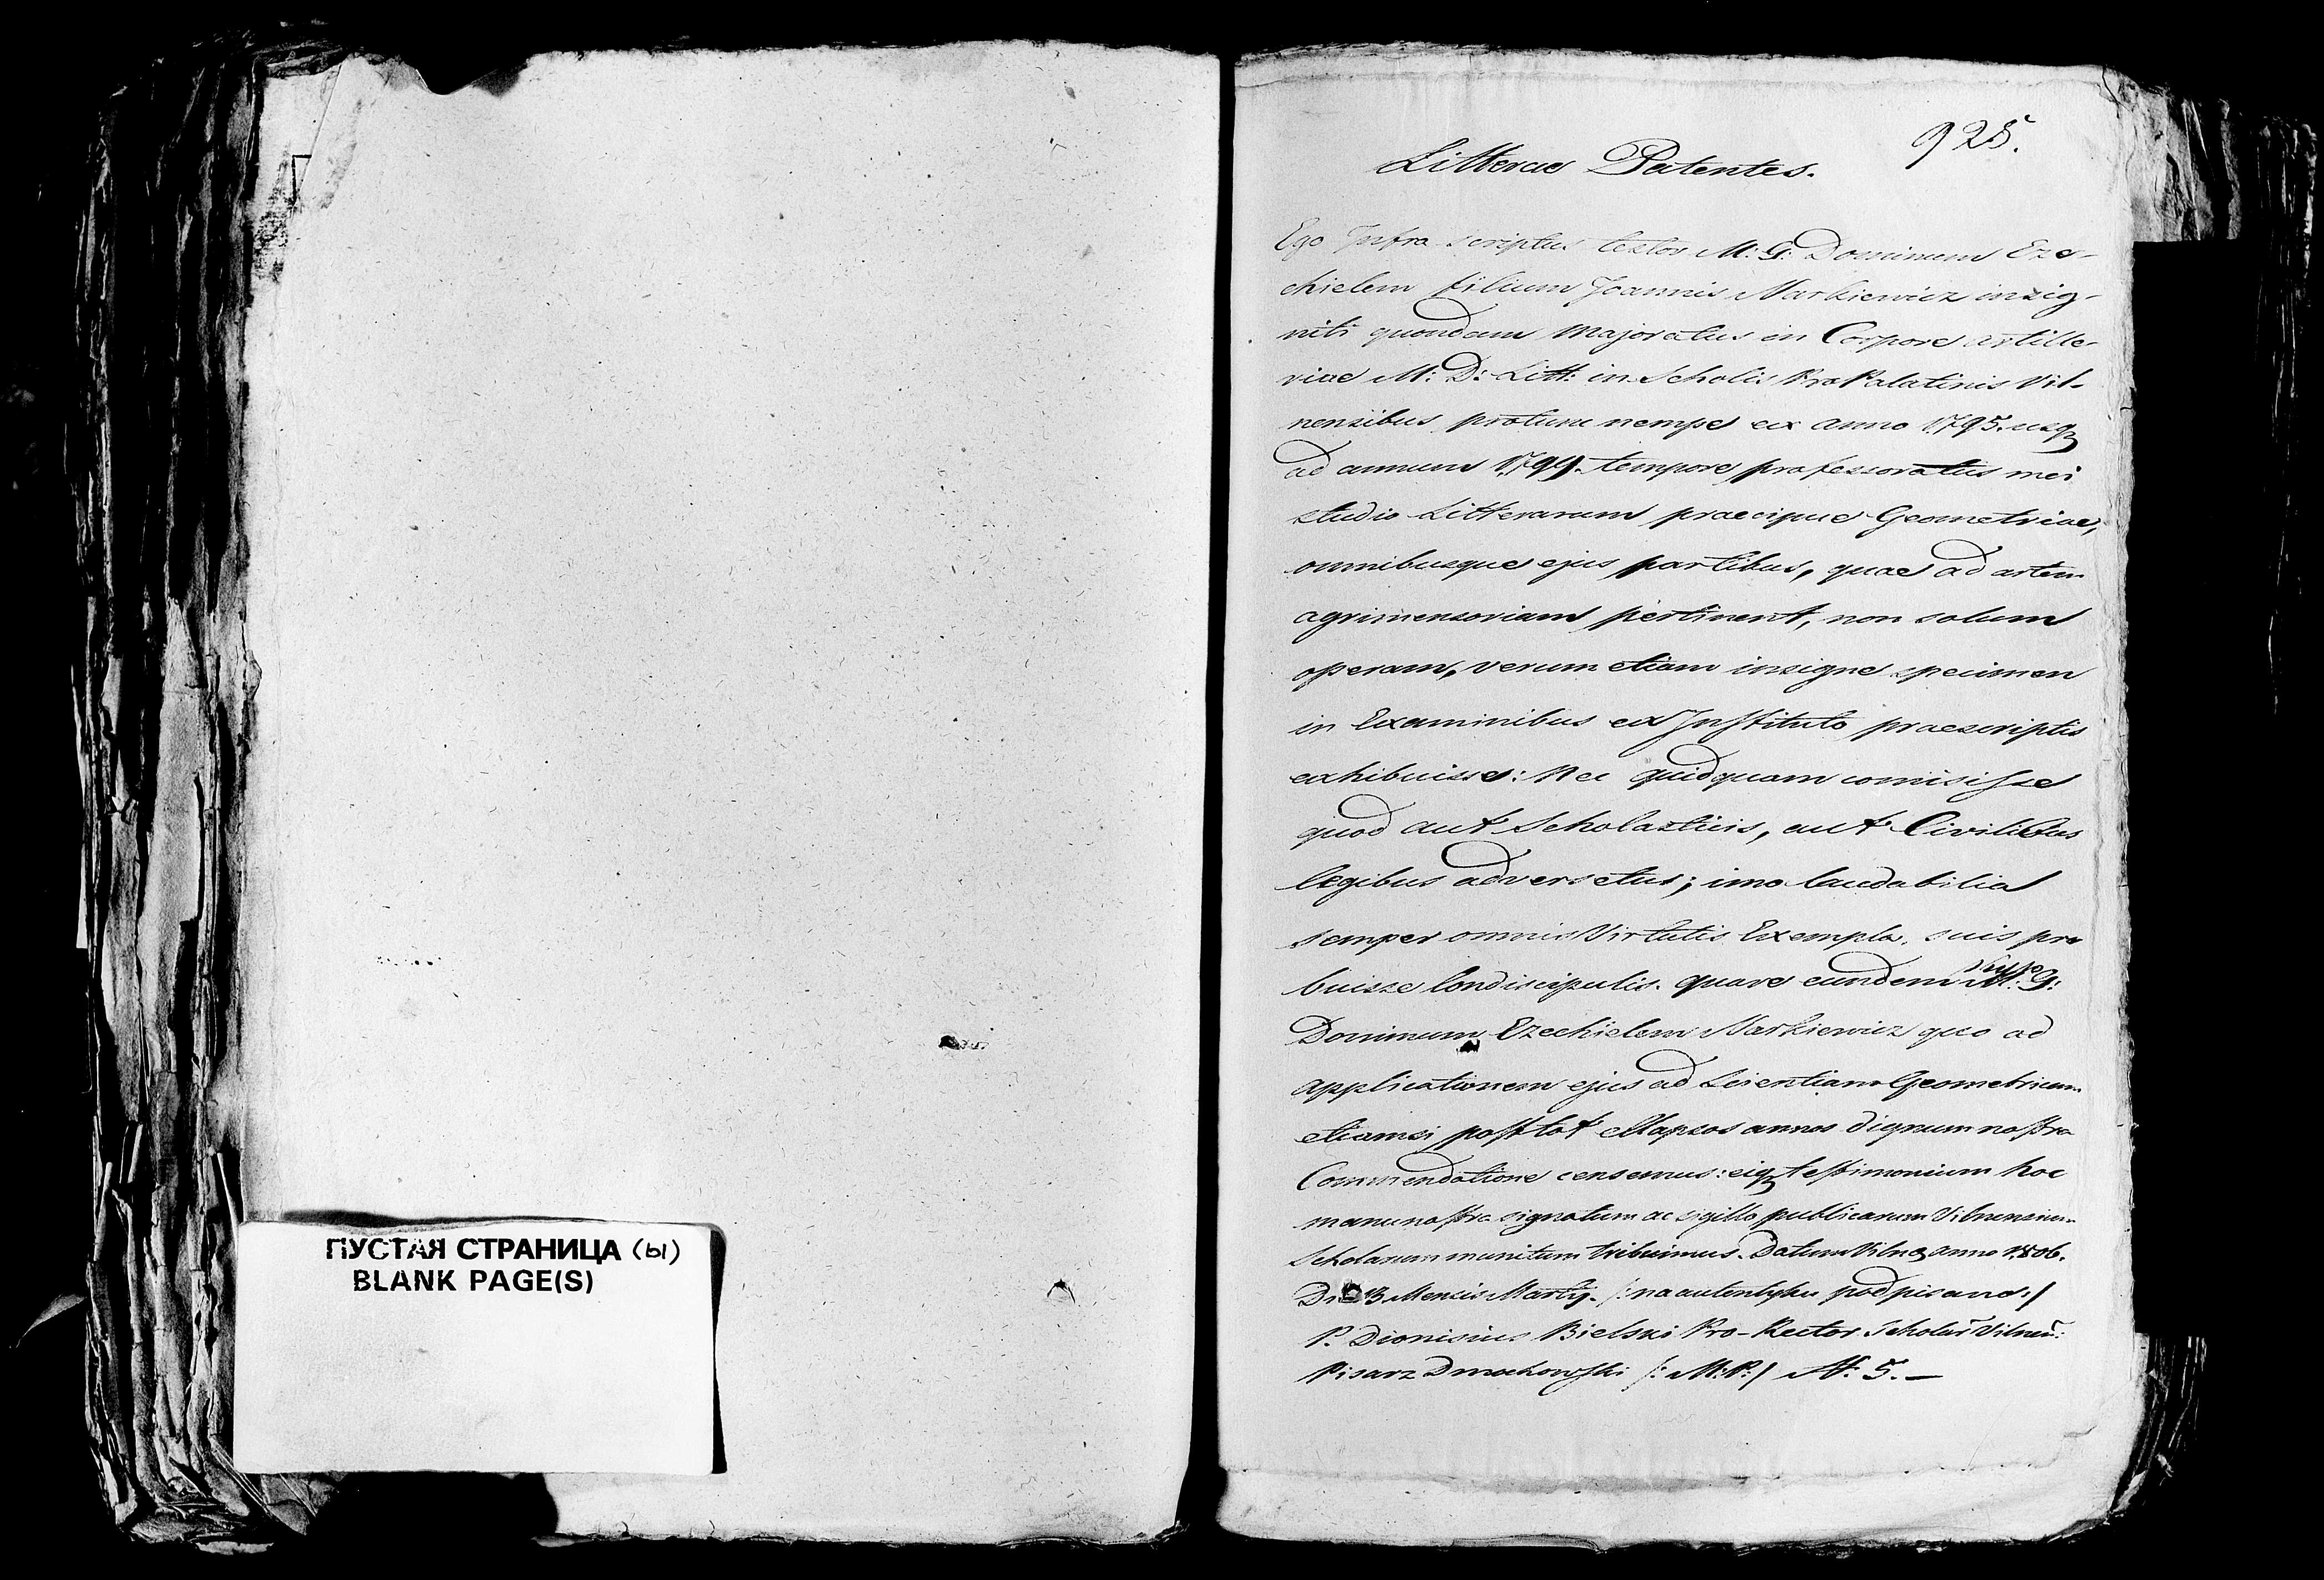 ПУСТАЯ СТРАНИЦА (ы)
BLANK PAGE(S)
925.
Litterae Patentes.
Ego Infra scriptus testor M: G: Dominum Eze-
chielem filium Joannis Markiewicz insig-
niti quondam Majoratus in Corpore artille-
riae M: D: Litt: in Scholis Pro Palatinis Vil-
nensibus protunc nempe ex anno 1795. usq
ad annum 1799. tempore professoratus mei
studio Litterarum praecipue Geometriae,
omnibusque ejus partibus, quae ad artem
agrimensoriam pertinent, non solum
operam, verum etiam insigne specimen
in Examinibus ex Instituto praescriptis
exhibuisse: Nec quidquam comisisse
quod aut Scholasticis, aut Civilibus
legibus adversetur; imo laudabilia
semper omnis Virtutis Exempla, suis prae
buisse Condiscipulis. quare eundem M: G:
Dominum Ezechielem Markiewicz quo ad
applicationem ejus ad Scientiam Geometricam
etiamsi post tot ellapsos annos dignum nostra
Commendatione censemus: eiq testimonium hoc
manu nostra signatum ac sigillo publicarum Vilnensium
Scholarum munitum tribuimus. Datum Vilnae anno 1806.
Die 13 Mensis Martij. /: na autentyku podpisano :/
P. Dionisius Bielski Pro-Rector Scholar Vilnen:
Pisarz Dmochowski /: M: P: / N. 5. —